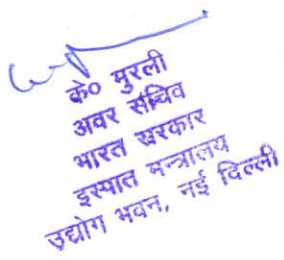 के० मुरली
अवर सचिव
भारत सरकार
इस्पात मन्त्रालय
उद्योग भवन, नई दिल्ली